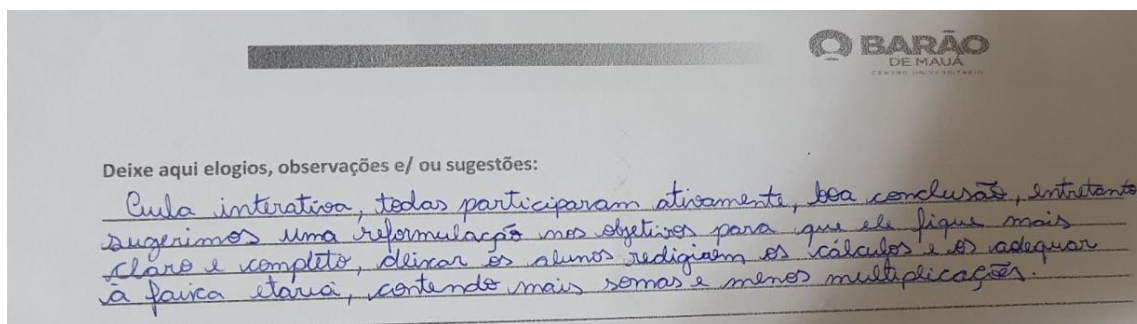 BARÃO
DE MAUÁ
CENTRO UNIVERSITÁRIO
Deixe aqui elogios, observações e/ ou sugestões:
Aula interativa, todas participaram ativamente, boa conclusão, entretanto
sugerimos uma reformulação nos objetivos para que ele fique mais
claro e completo, deixar os alunos redigirem os cálculos e os adequar
à faixa etária, contendo mais somas e menos multiplicações.